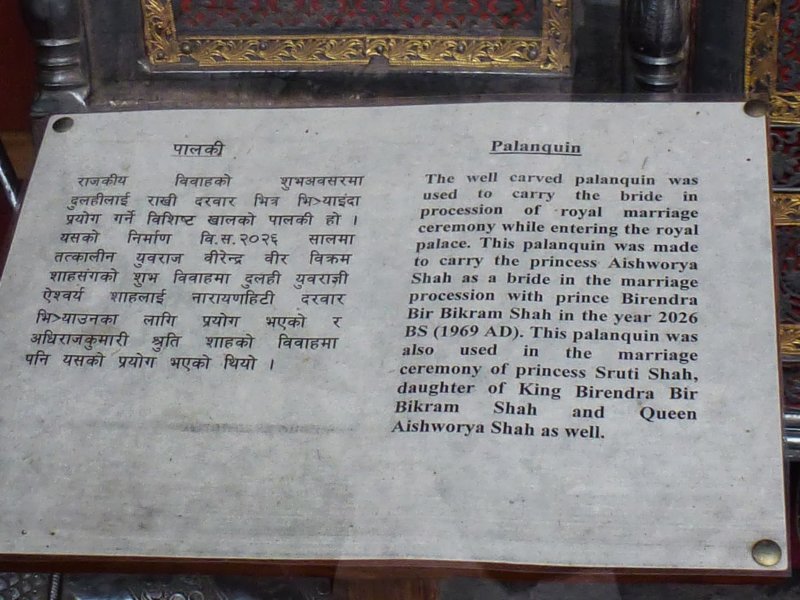 पालकी
राजकीय विवाहको शुभअवसरमा
दुलहीलाई राखी दरवार भित्र भि>याइंदा
प्रयोग गर्ने विशिष्ट खालको पालकी हो ।
यसको निर्माण वि.स.२०२६ सालमा
तत्कालीन युवराज वीरेन्द्र वीर विक्रम
शाहसंगको शुभ विवाहमा दुलही युवराज्ञी
ऐश्वर्य शाहलाई नारायणहिटी दरवार
भि>याउनका लागि प्रयोग भएको र
अधिराजकुमारी श्रुति शाहको विवाहमा
पनि यसको प्रयोग भएको थियो ।
Palanquin
The well carved palanquin was
used to carry the bride in
procession of royal marriage
ceremony while entering the royal
palace. This palanquin was made
to carry the princess Aishworya
Shah as a bride in the marriage
procession with prince Birendra
Bir Bikram Shah in the year 2026
BS (1969 AD). This palanquin was
also used in the marriage
ceremony of princess Sruti Shah,
daughter of King Birendra Bir
Bikram Shah and Queen
Aishworya Shah as well.